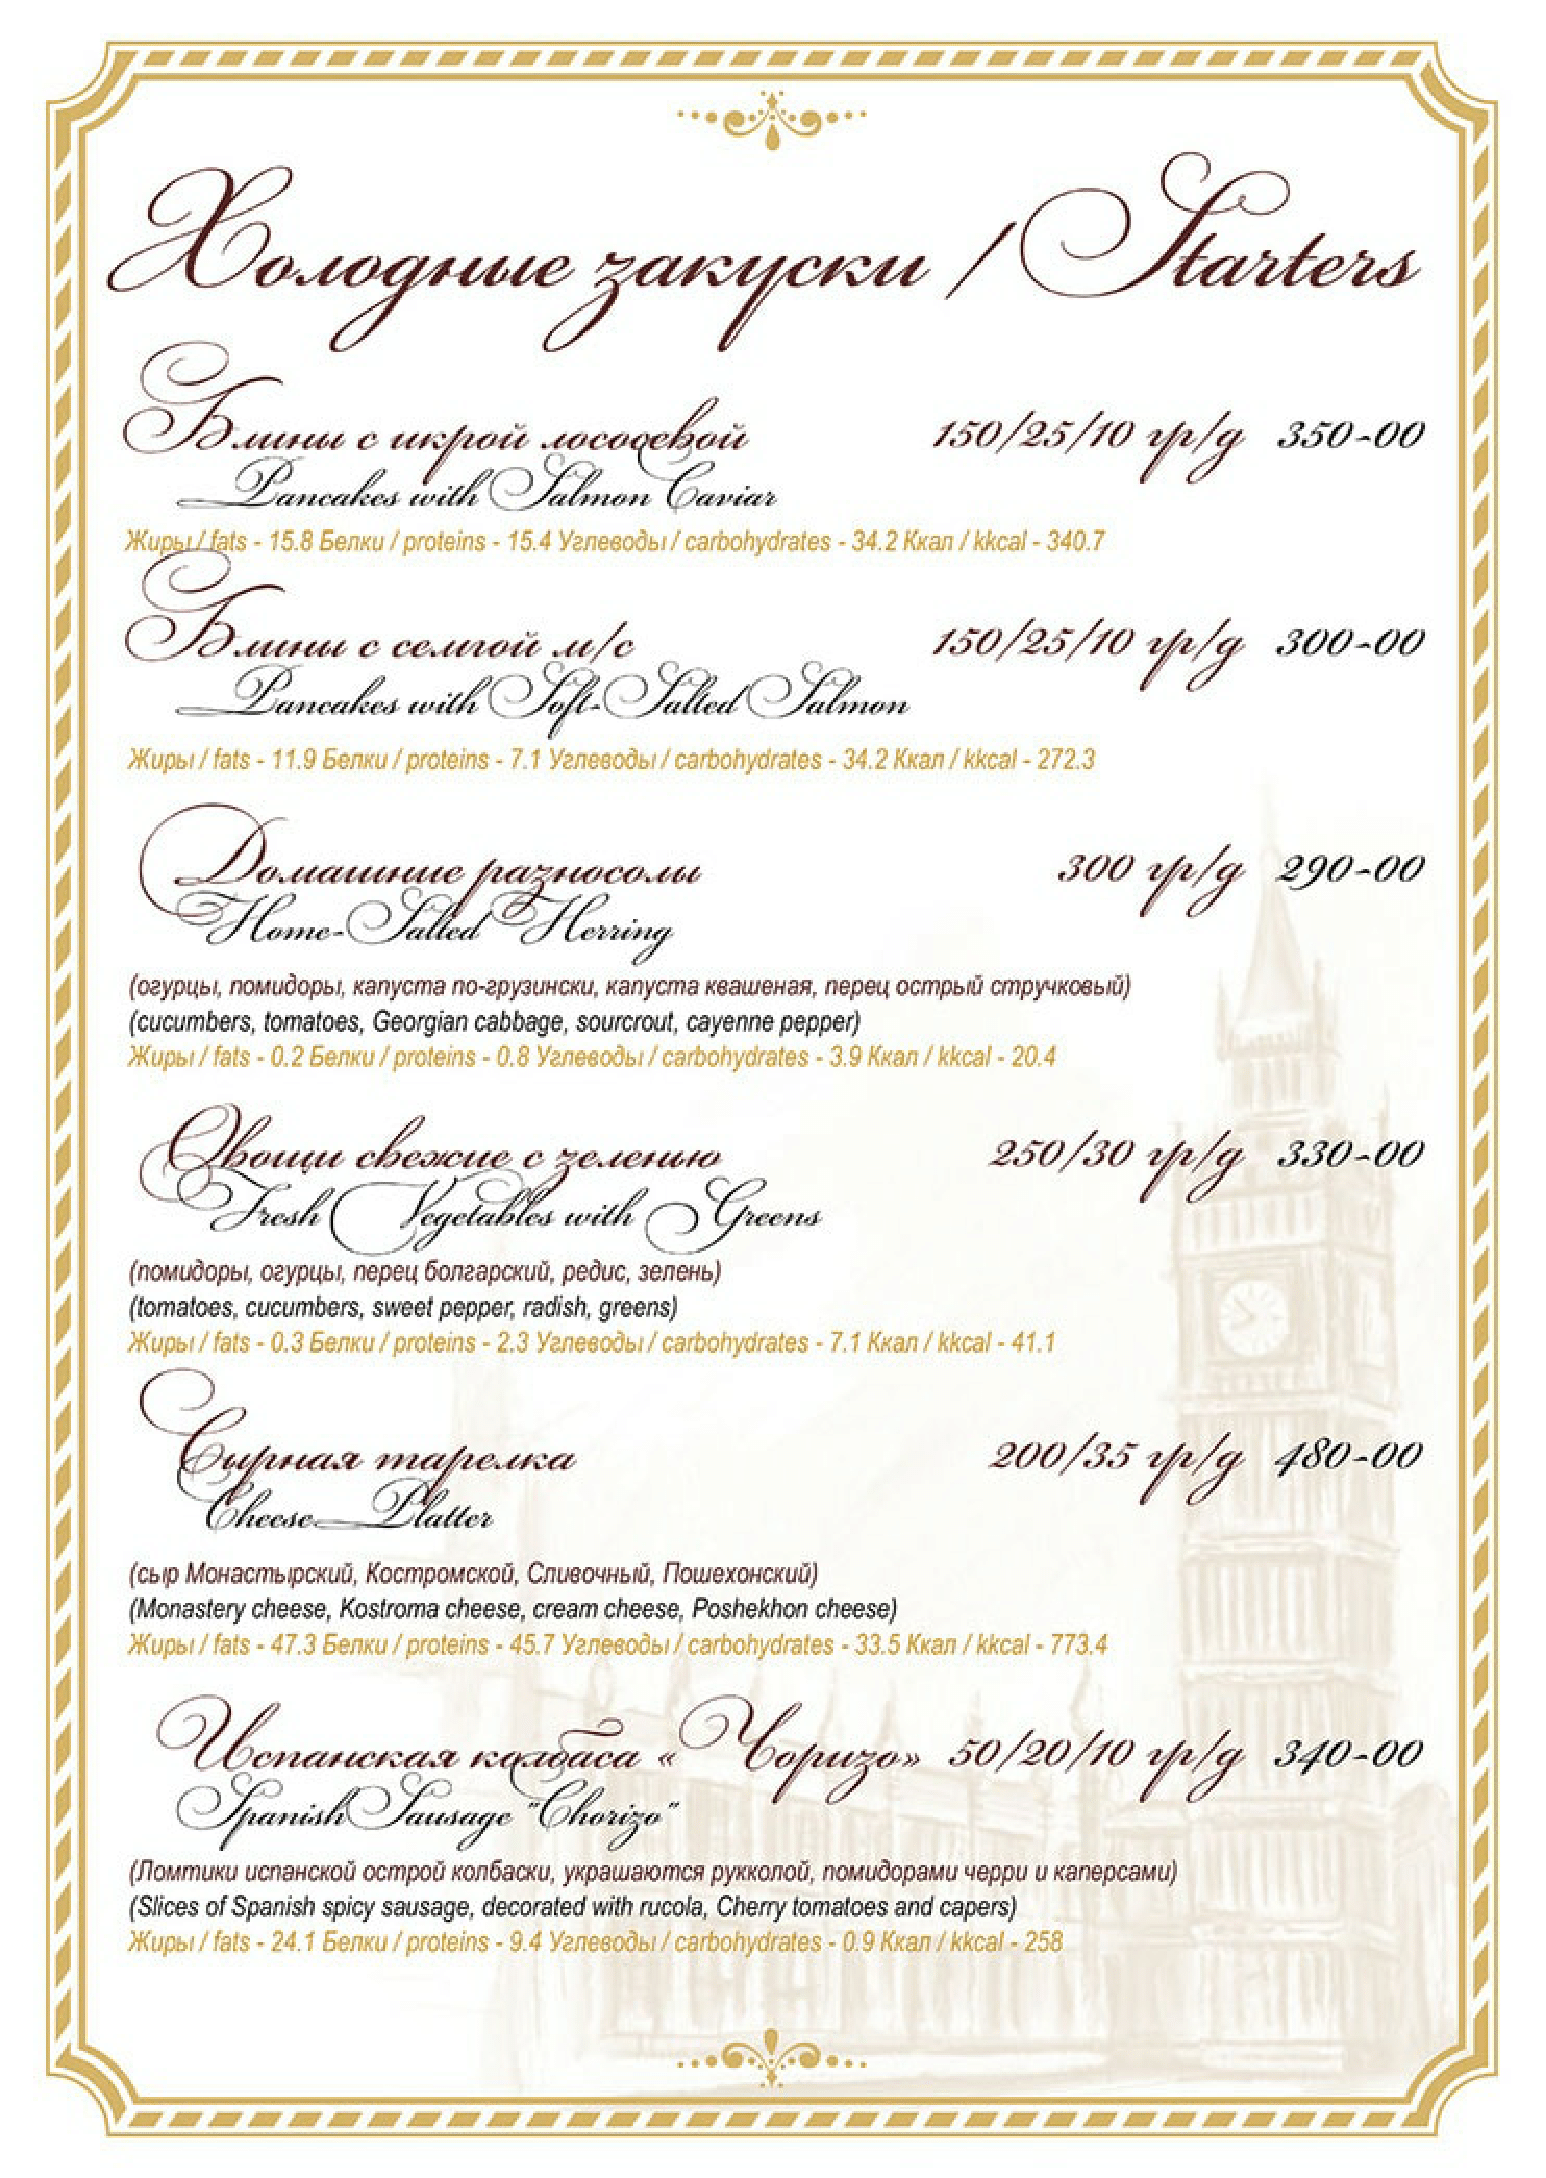 Холодные закуски / Starters
Блины с икрой лососевой 150/25/10 гр/g 350-00
Pancakes with Salmon Caviar
Жиры / fats - 15.8 Белки / proteins - 15.4 Углеводы / carbohydrates - 34.2 Ккал / kkcal - 340.7
Блины с семгой м/с 150/25/10 гр/g 300-00
Pancakes with Soft-Salted Salmon
Жиры / fats - 11.9 Белки / proteins - 7.1 Углеводы / carbohydrates - 34.2 Ккал / kkcal - 272.3
Домашние разносолы 300 гр/g 290-00
Home-Salted Herring
(огурцы, помидоры, капуста по-грузински, капуста квашеная, перец острый стручковый)
(cucumbers, tomatoes, Georgian cabbage, sourcrout, cayenne pepper)
Жиры / fats - 0.2 Белки / proteins - 0.8 Углеводы / carbohydrates - 3.9 Ккал / kkcal - 20.4
Овощи свежие с зеленью 250/30 гр/g 330-00
Fresh Vegetables with Greens
(помидоры, огурцы, перец болгарский, редис, зелень)
(tomatoes, cucumbers, sweet pepper, radish, greens)
Жиры / fats - 0.3 Белки / proteins - 2.3 Углеводы / carbohydrates - 7.1 Ккал / kkcal - 41.1
Сырная тарелка 200/35 гр/g 480-00
Cheese Platter
(сыр Монастырский, Костромской, Сливочный, Пошехонский)
(Monastery cheese, Kostroma cheese, cream cheese, Poshekhon cheese)
Жиры / fats - 47.3 Белки / proteins - 45.7 Углеводы / carbohydrates - 33.5 Ккал / kkcal - 773.4
Испанская колбаса «Чоризо» 50/20/10 гр/g 340-00
Spanish Sausage "Chorizo"
(Ломтики испанской острой колбаски, украшаются рукколой, помидорами черри и каперсами)
(Slices of Spanish spicy sausage, decorated with rucola, Cherry tomatoes and capers)
Жиры / fats - 24.1 Белки / proteins - 9.4 Углеводы / carbohydrates - 0.9 Ккал / kkcal - 258